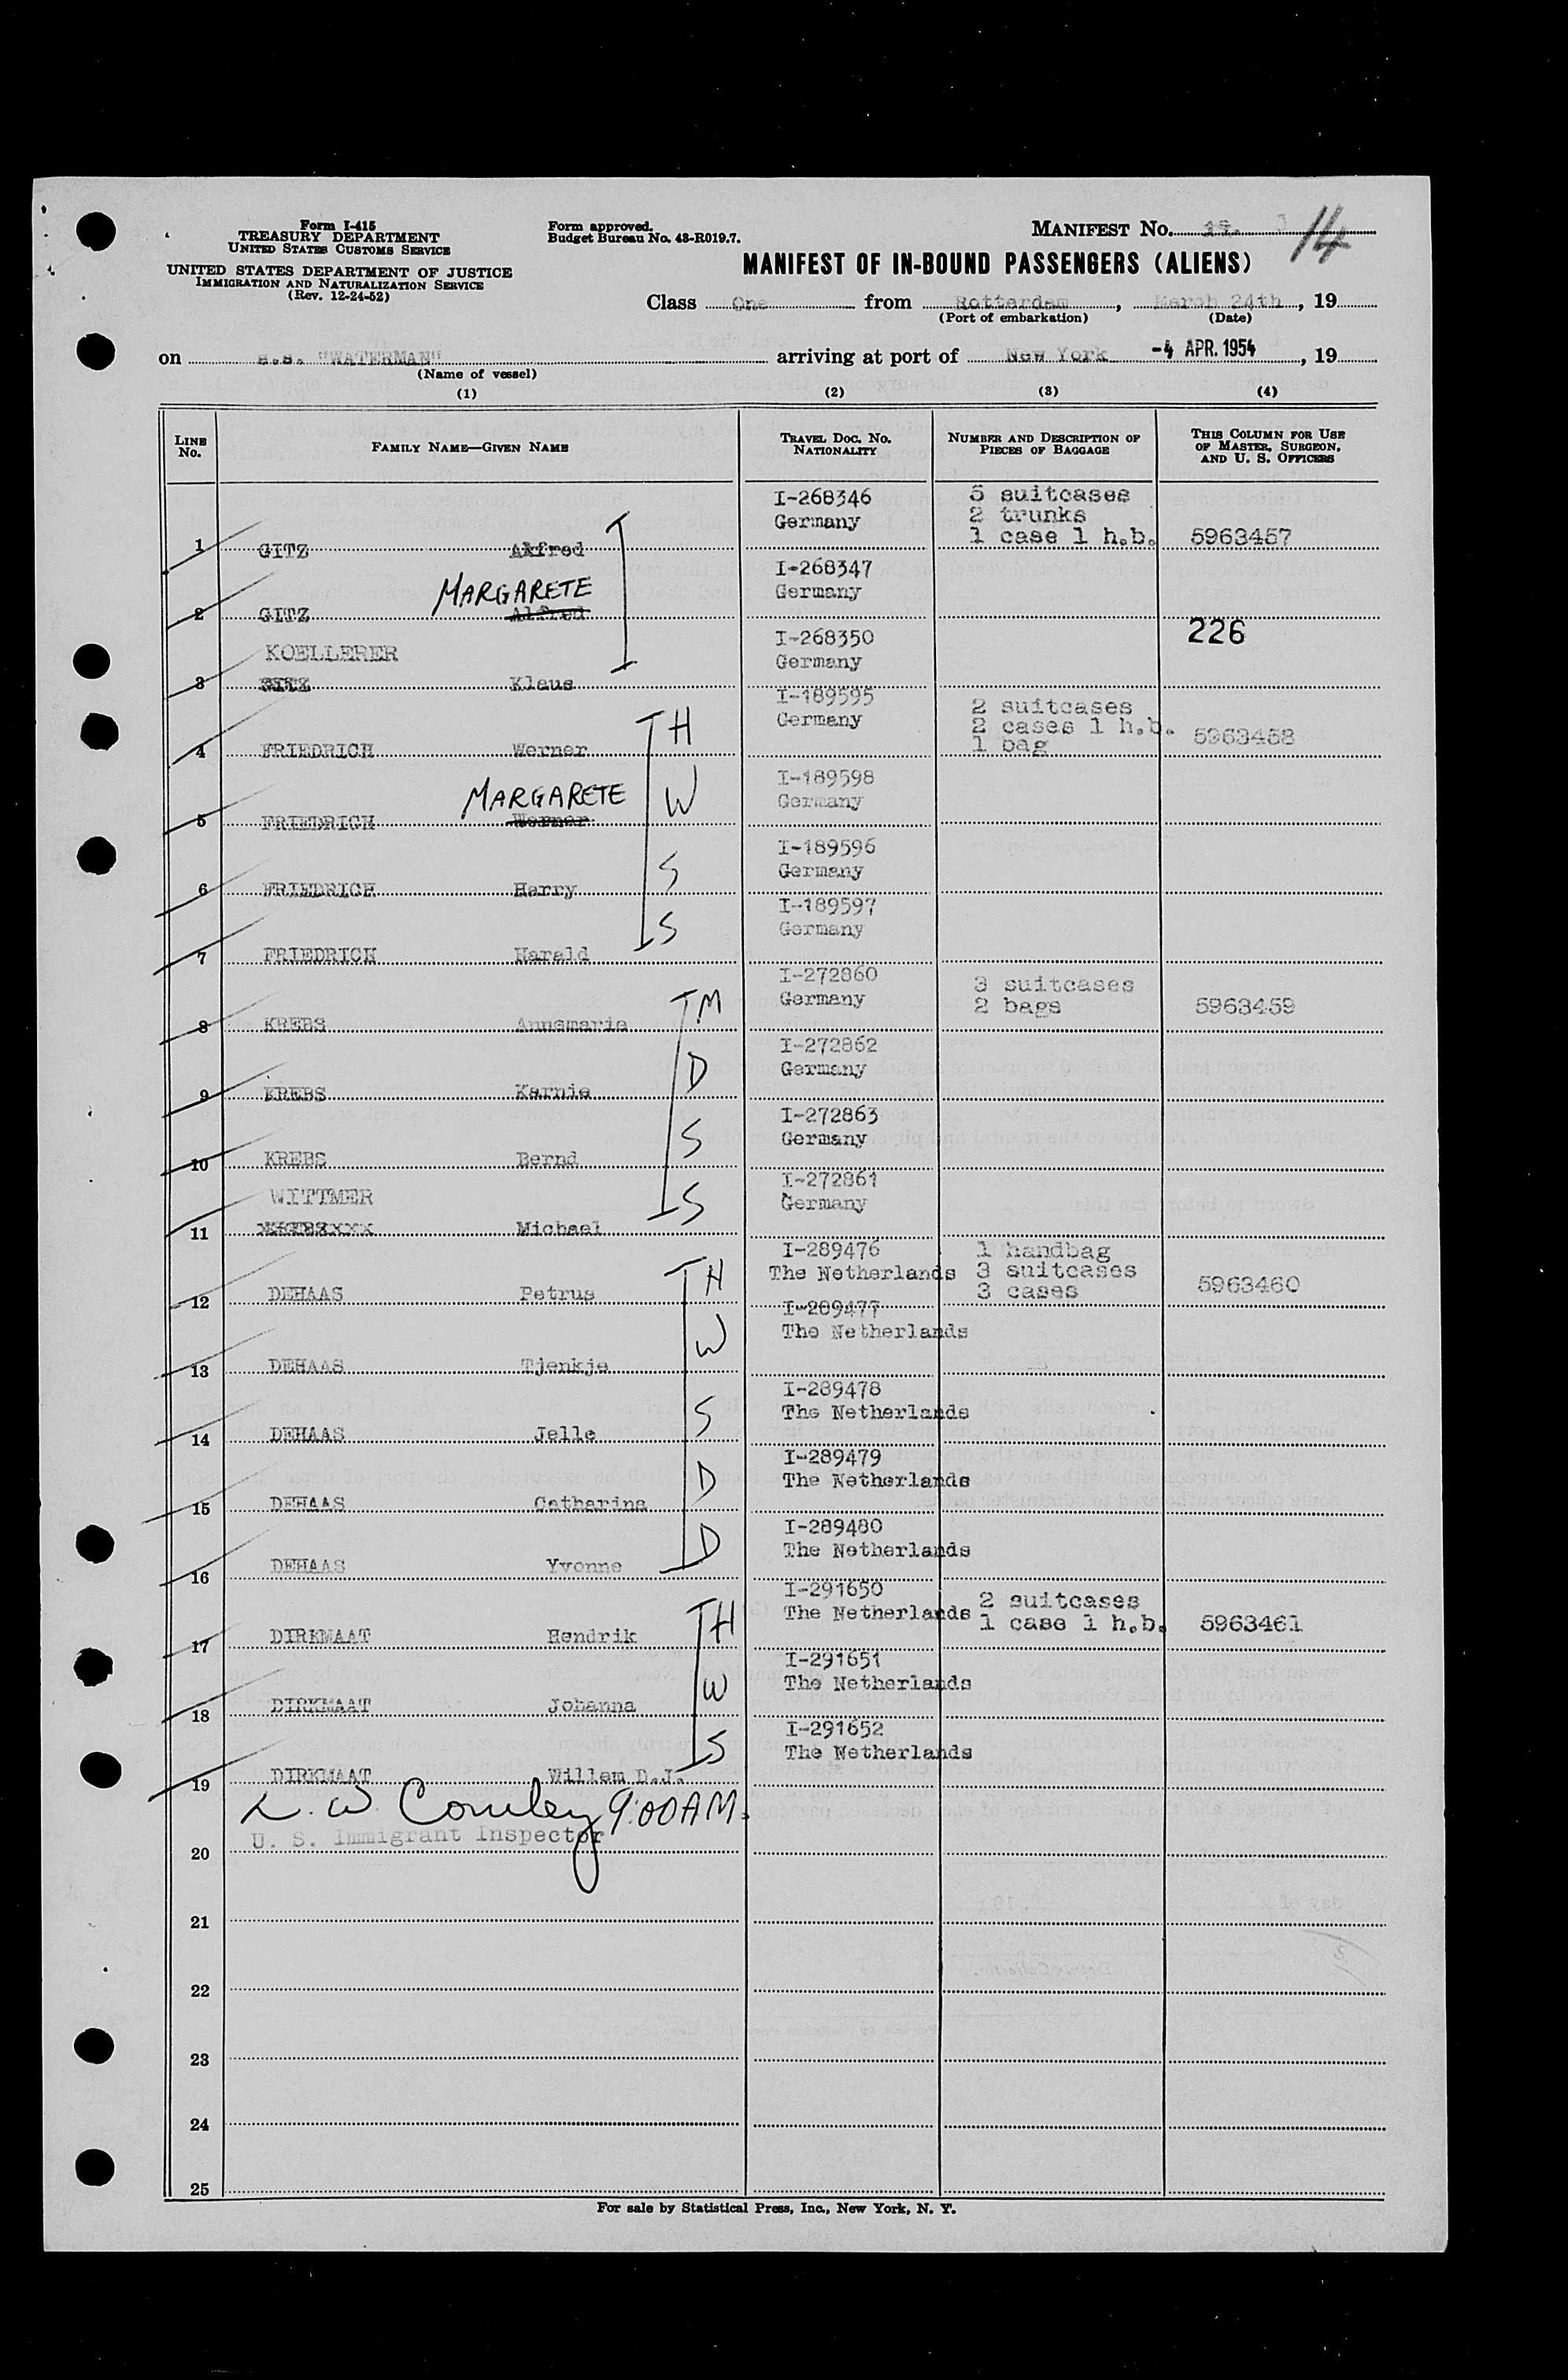 Form I-415
TREASURY DEPARTMENT
UNITED STATES CUSTOMS SERVICE
UNITED STATES DEPARTMENT OF JUSTICE
IMMIGRATION AND NATURALIZATION SERVICE
(Rev. 12-24-52)
Form approved.
Budget Bureau No. 43-R019.7.
MANIFEST No. 14
MANIFEST OF IN-BOUND PASSENGERS (ALIENS)
Class One from Rotterdam, March 24th, 19
(Port of embarkation) (Date)
on s.s. "WATERMAN" arriving at port of New York -4 APR. 1954, 19
(Name of vessel)
(1) (2) (3) (4)
LINE No. FAMILY NAME—GIVEN NAME TRAVEL DOC. NO. NATIONALITY NUMBER AND DESCRIPTION OF PIECES OF BAGGAGE THIS COLUMN FOR USE OF MASTER, SURGEON, AND U. S. OFFICERS
I-268346 5 suitcases
Germany 2 trunks
1 GITZ Akfred 1 case 1 h.b. 5963457
I-268347
MARGARETE Germany
2 GITZ Alfred
226
I-268350
KOELLERER Germany
3 GITZ Klaus
I-189595 2 suitcases
Germany 2 cases 1 h.b. 5963458
4 FRIEDRICH Werner H 1 bag
I-189598
MARGARETE W Germany
5 FRIEDRICH Werner
I-189596
Germany
6 FRIEDRICH Harry S
I-189597
Germany
7 FRIEDRICH Harald S
I-272860 3 suitcases
Germany 2 bags 5963459
8 KREBS Annemarie M
I-272862
Germany
9 KREBS Karnie D
I-272863
Germany
10 KREBS Bernd S
I-272861
WITTMER Germany
11 Michael S
I-289476 1 handbag
The Netherlands 3 suitcases
12 DEHAAS Petrus H 3 cases 5963460
I-289477
The Netherlands
13 DEHAAS Tjenkje W
I-289478
The Netherlands
14 DEHAAS Jelle S
I-289479
The Netherlands
15 DEHAAS Catharina D
I-289480
The Netherlands
16 DEHAAS Yvonne D
I-291650 2 suitcases
The Netherlands 1 case 1 h.b. 5963461
17 DIRKMAAT Hendrik H
I-291651
The Netherlands
18 DIRKMAAT Johanna W
I-291652
The Netherlands
19 DIRKMAAT Willem D.J. S
L. W. Comley 9:00 AM.
U. S. Immigrant Inspector
20
21
22
23
24
25
For sale by Statistical Press, Inc., New York, N. Y.